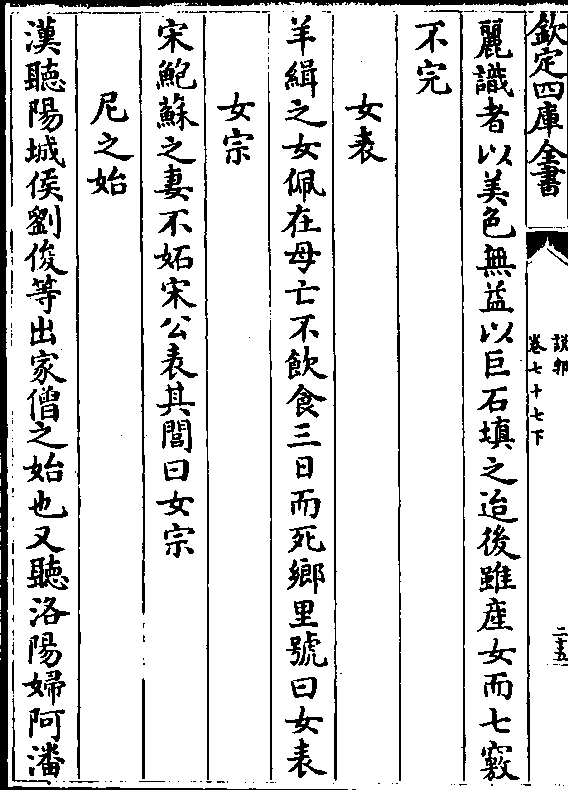 欽定四庫全書
說郛
卷七十七下
二十五
麗識者以美色無益以巨石填之迨後雖産女而七竅
不完
女表
羊緝之女佩在母亡不飲食三日而死鄉里號曰女表
女宗
宋鮑蘇之妻不妬宋公表其閭曰女宗
尼之始
漢聽陽城侯劉俊等出家僧之始也又聽洛陽婦阿潘